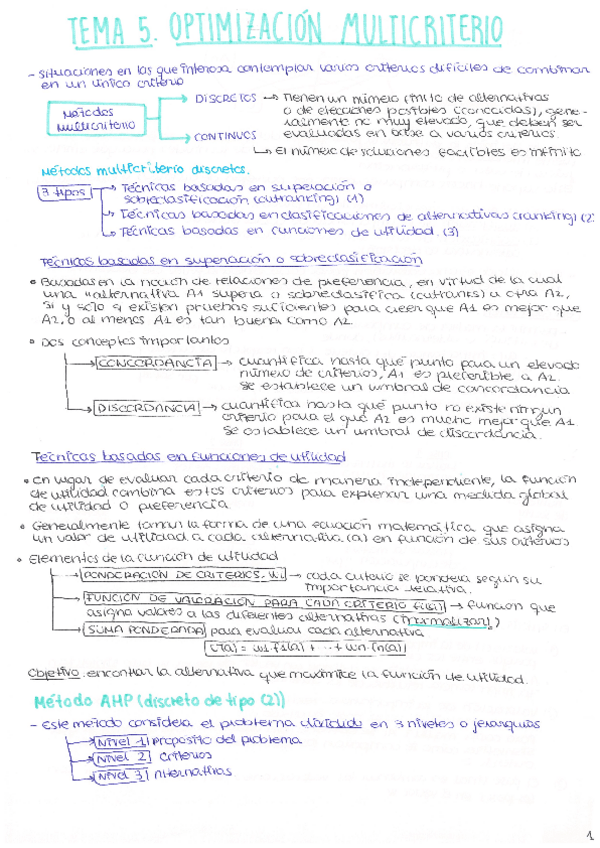 TEMA 5. OPTIMIZACIÓN MULTICRITERIO
- Situaciones en las que interesa contemplar varios criterios difíciles de combinar
en un único criterio
Métodos
multicriterio
DISCRETOS → Tienen un número finito de alternativas
o de elecciones posibles (conocidas), gene-
ralmente no muy elevado, que deben ser
evaluadas en base a varios criterios
CONTINUOS
↳ El número de soluciones factibles es infinito
Métodos multicriterio discretos.
3 tipos
Técnicas basadas en superación o
sobreclasificación (outranking) (1)
Técnicas basadas en clasificaciones de alternativas (ranking) (2)
Técnicas basadas en funciones de utilidad. (3)
Técnicas basadas en superación o sobreclasificación
• Basadas en la noción de relaciones de preferencia, en virtud de la cual
una "alternativa A1 supera o sobreclasifica (outranks) a otra A2,
si y solo si existen pruebas suficientes para creer que A1 es mejor que
A2, o al menos A1 es tan buena como A2.
• Dos conceptos importantes
CONCORDANCIA → cuantifica hasta qué punto para un elevado
número de criterios, A1 es preferible a A2.
Se establece un umbral de concordancia
DISCORDANCIA → cuantifica hasta qué punto no existe ningún
criterio para el que A2 es mucho mejor que A1.
Se establece un umbral de discordancia.
Técnicas basadas en funciones de utilidad
• En lugar de evaluar cada criterio de manera independiente, la función
de utilidad combina estos criterios para expresar una medida global
de utilidad o preferencia.
• Generalmente toman la forma de una ecuación matemática que asigna
un valor de utilidad a cada alternativa (a) en función de sus criterios
• Elementos de la función de utilidad
PONDERACIÓN DE CRITERIOS, wi → cada criterio se pondera según su
importancia relativa.
FUNCIÓN DE VALORACIÓN PARA CADA CRITERIO fi(a) → función que
asigna valores a las diferentes alternativas (¡normalizar!)
SUMA PONDERADA para evaluar cada alternativa
U(a) = w1·f1(a) + ··· + wn·fn(a)
Objetivo: encontrar la alternativa que maximice la función de utilidad.
Método AHP (discreto de tipo (2))
- Este método considera el problema dividido en 3 niveles o jerarquías
Nivel 1 propósito del problema
Nivel 2 criterios
Nivel 3 Alternativas
1